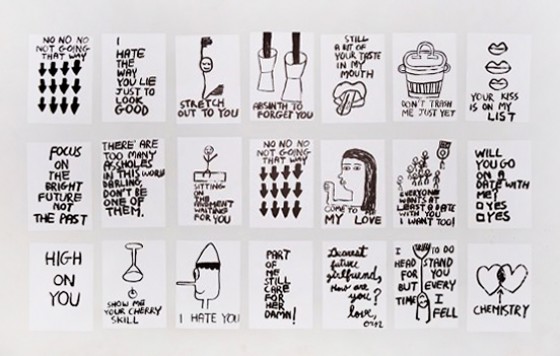 NO NO NO
NOT GOING
THAT WAY
I
HATE
THE
WAY
YOU LIE
JUST TO
LOOK
GOOD
STRETCH
OUT TO YOU
ABSINTH TO
FORGET YOU
STILL
A BIT OF
YOUR TASTE
IN MY
MOUTH
DON'T TRASH
ME JUST YET
YOUR KISS
IS ON MY
LIST
FOCUS
ON
THE
BRIGHT
FUTURE
NOT
THE PAST
THERE ARE
TOO MANY
ASSHOLES
IN THIS WORLD
DARLING,
DON'T BE
ONE OF
THEM.
SITTING
ON THE
PAVEMENT
WAITING
FOR YOU
NO NO NO
NOT GOING
THAT WAY
COME TO ME
MY LOVE
EVERYONE
WANTS AT
LEAST A DATE
WITH YOU
I WANT TOO!
WILL
YOU GO
ON A
DATE WITH
ME?
YES
YES
HIGH
ON
YOU
SHOW ME
YOUR CHERRY
SKILL
I HATE YOU
PART
OF
ME
STILL
CARE
FOR
HER
DAMN!
Dearest
future
girlfriend,
How are
you?
love,
I TO DO
HEAD STAND
FOR YOU
BUT EVERY
TIME I
FELL
CHEMISTRY